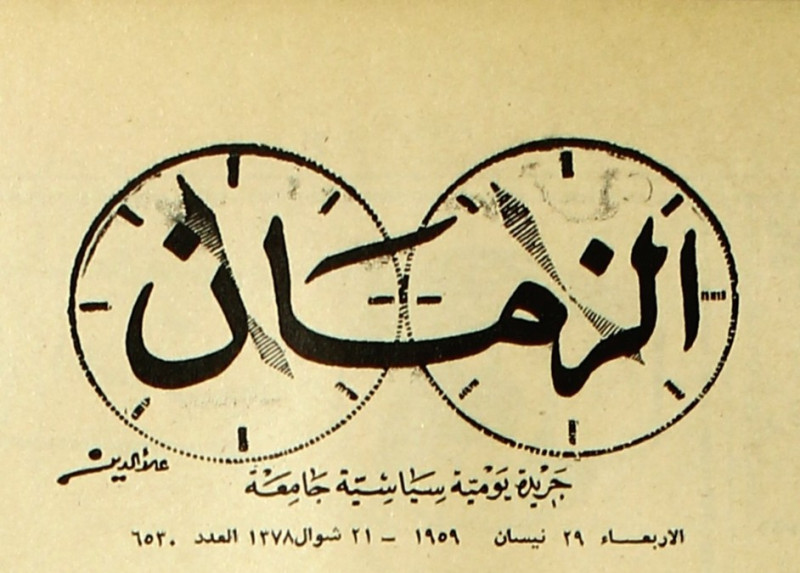 الزمان
علاء الدين
جَرِيْدة يَوْميّة سِيَاسِيّة جَامِعَة
الاربعاء ٢٩ نيسان ١٩٥٩ - ٢١ شوال ١٣٧٨ العدد ٦٥٣٠